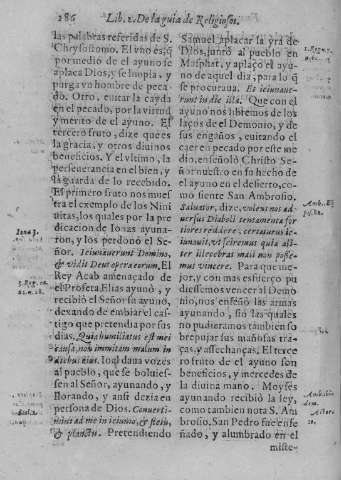 286 Lib. 2. De la guia de Religiosos.
las palabras referidas de S.
Chrysostomo. El vno es, q̃
por medio del ayuno se
aplaca Dios, y se limpia, y
purga vn hombre de peca
do. Otro, euitar la cayda
en el pecado, por la virtud
y merito de el ayuno. El
tercero fruto, dize que es
la gracia, y otros diuinos
beneficios. Y el vltimo, la
perseuerancia en el bien, y
la guarda de lo recebido.
El primero fruto nos mues
tra el exemplo de los Nini
uitas, los quales por la pre
dicacion de Ionas ayuna-
ron, y los perdonò el Se-
ñor. Ieiunauerunt Domino,
& vidit Deus opera eorum. El
Rey Acab amenaçado de
el Profeta Elias ayunò, y
recibiò el Señor su ayuno,
dexando de embiar el cas-
tigo que pretendia por sus
dias. Quia humiliatus est mei
causa, non inmittam malum in
diebus eius. Ioel daua vozes
al pueblo, que se boluies-
sen al Señor, ayunando, y
llorando, y ansi dezia en
persona de Dios. Conuerti-
mini ad me in ieiunio, & fletu,
& planctu. Pretendiendo
Ionæ 3.
3. Reg. ca.
21. n. 28.
Ioel. 2.
Samuel, aplacar la yra de
Dios, juntò al pueblo en
Masphat, y aplaçò el ayu-
no de aquel dia, para lo q̃
se procuraua. Et ieiunaue-
runt in die illa. Que con el
ayuno nos libremos de los
laços del Demonio, y de
sus engaños, euitando el
caer en pecado por este me
dio, enseñolò Christo Se-
ñor nuestro en su hecho de
el ayuno en el desierto, co-
mo siente San Ambrosio.
Saluator, dize, volens nos ad-
uersus Diaboli tentamenta for
tiores reddere, certaturus ie-
iunauit, vt sciremus quia ali-
ter illecebras mali non posse-
mus vincere. Para que me-
jor, y con mas esfuerço pu
diessemos vencer al Demo
nio, nos enseñò las armas
ayunando, sin las quales
no pudieramos tambien so
brepujar sus mañosas tra-
ças, y assechanças. El terce
ro fruto de el ayuno son
beneficios, y mercedes de
la diuina mano. Moyses
ayunando recibiò la ley,
como tambien nota S. Am
brosio. San Pedro fue ense
ñado, y alumbrado en el
miste-
1. Reg. 7.